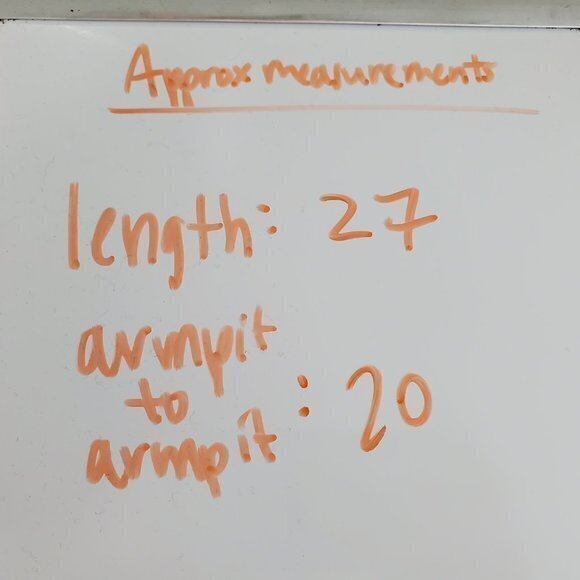 Approx measurements
length: 27
armpit
to
armpit : 20